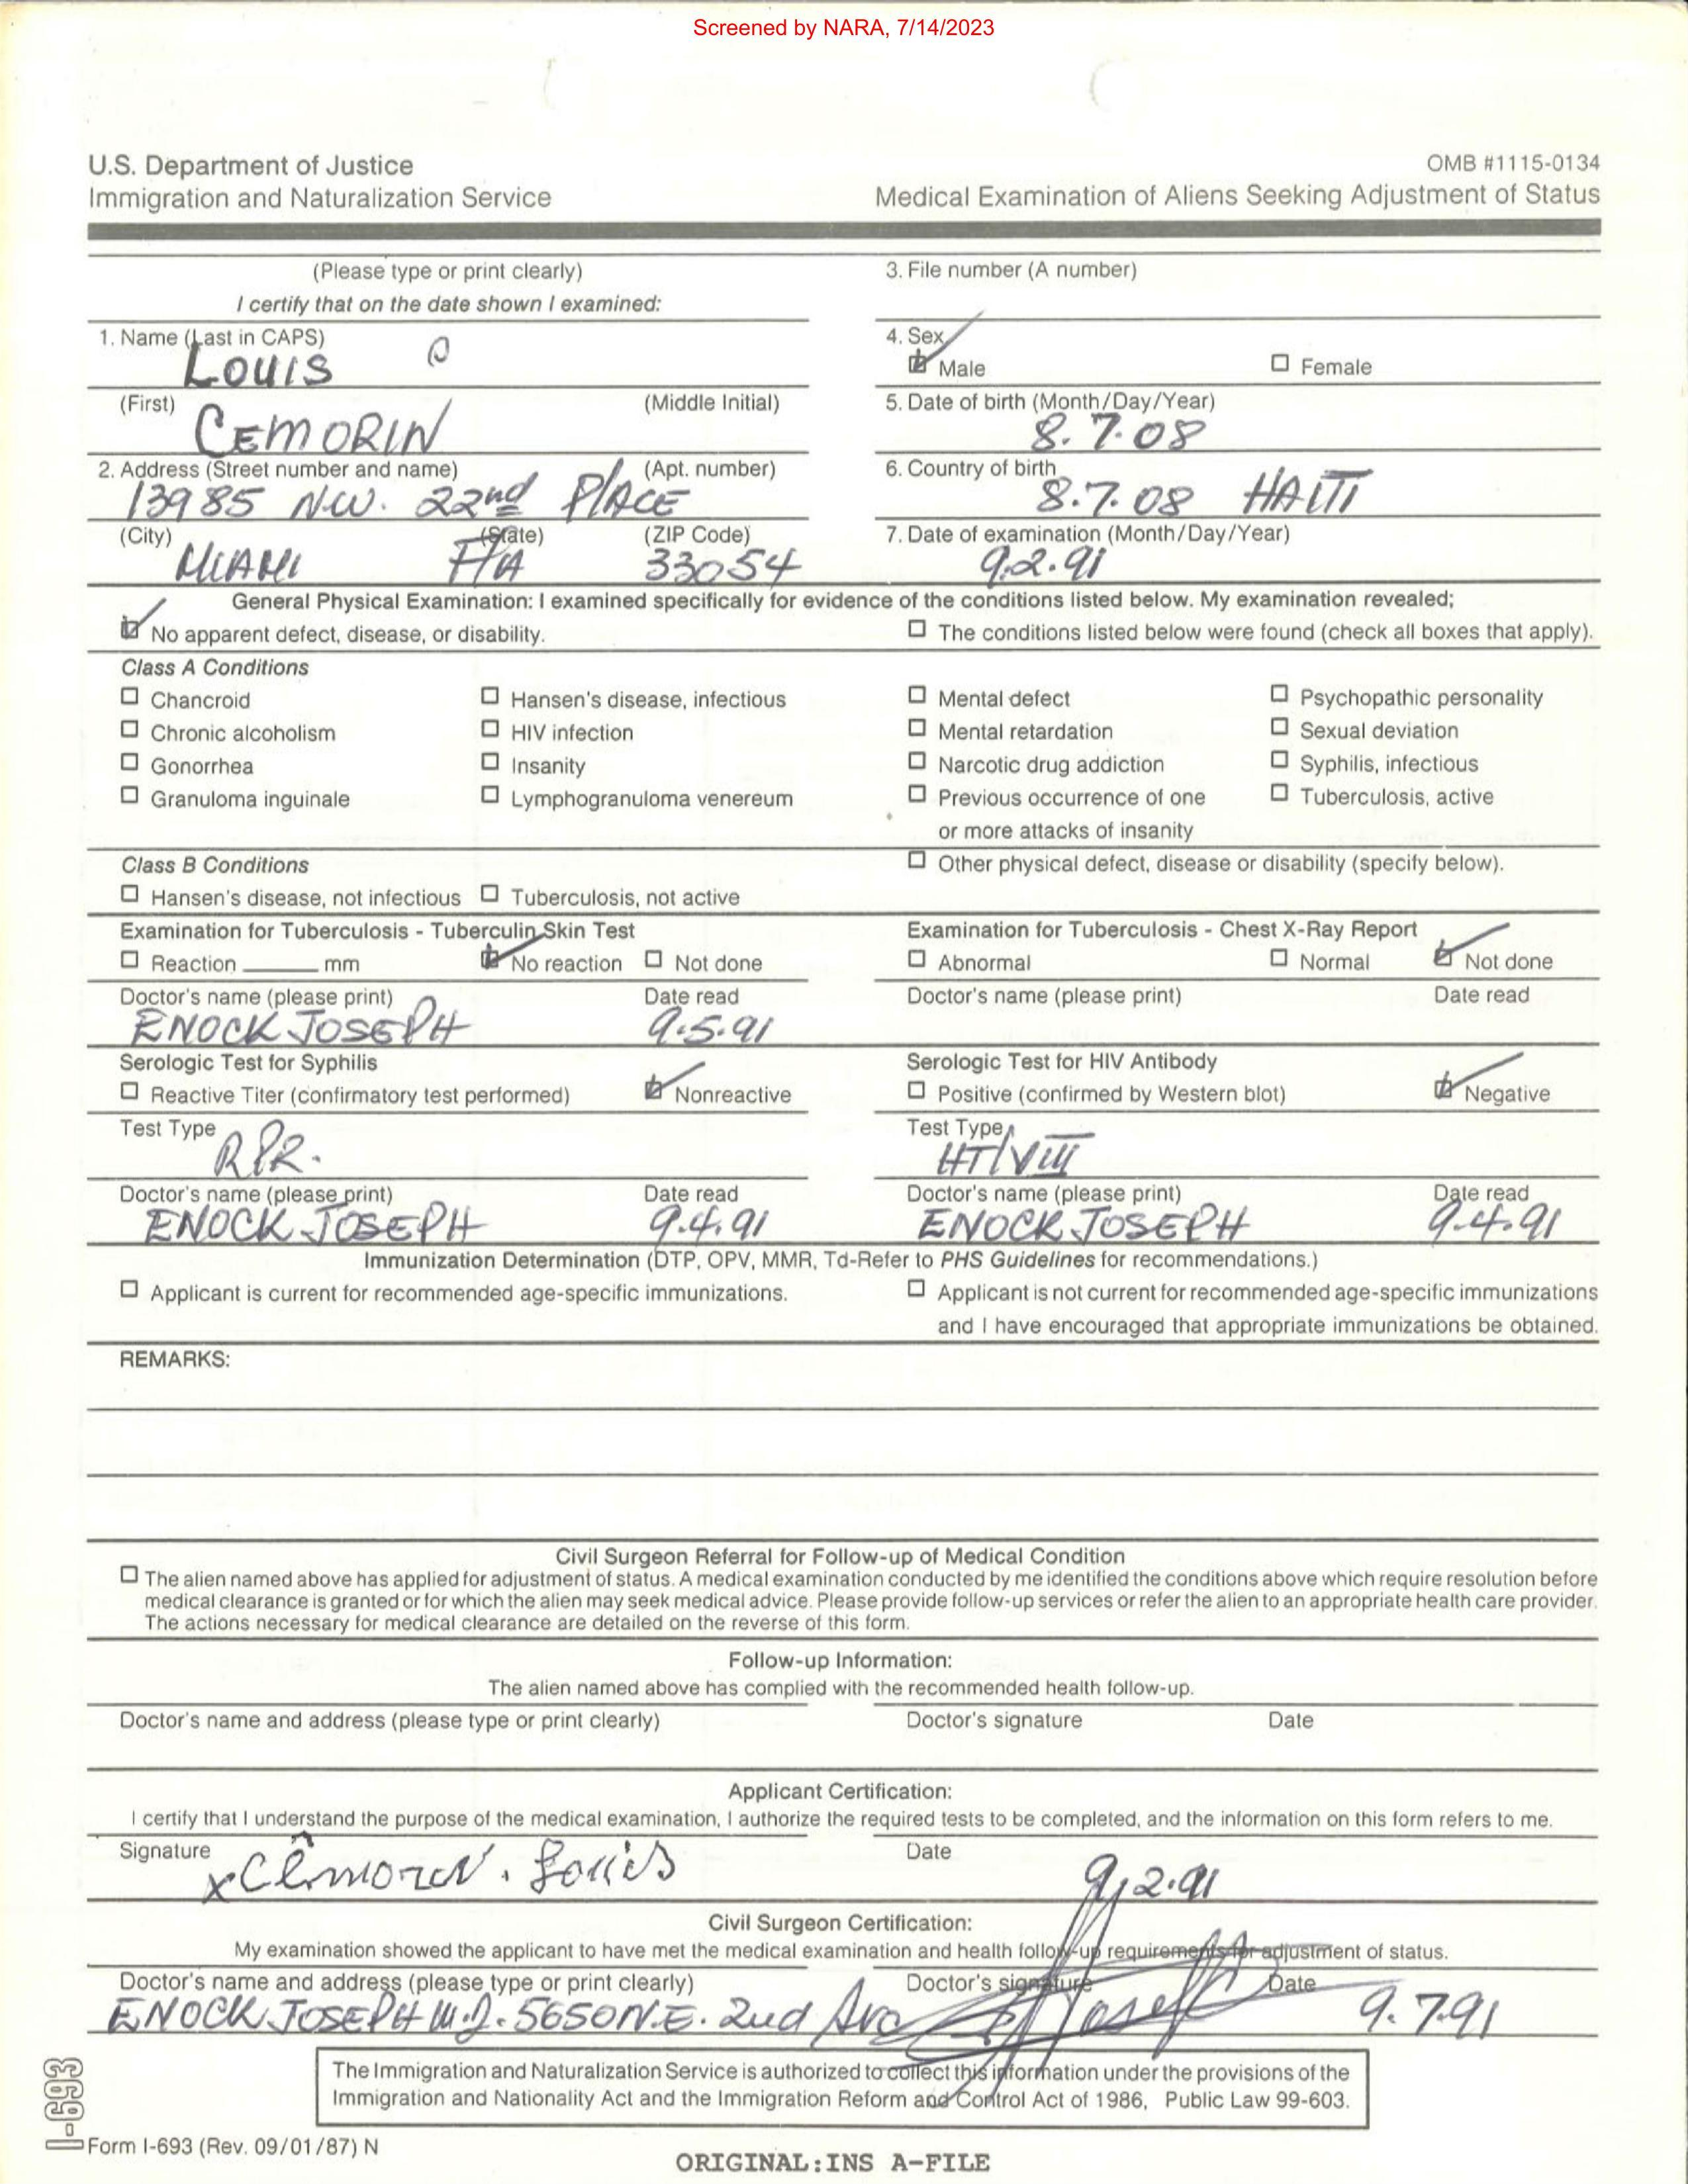 Screened by NARA, 7/14/2023
U.S. Department of Justice
Immigration and Naturalization Service
OMB #1115-0134
Medical Examination of Aliens Seeking Adjustment of Status
(Please type or print clearly)
I certify that on the date shown I examined:
3. File number (A number)
1. Name (Last in CAPS)
LOUIS
4. Sex
Male
Female
(First)
(Middle Initial)
CEMORIN
5. Date of birth (Month/Day/Year)
8.7.08
2. Address (Street number and name)
(Apt. number)
13985 N.W. 22nd PlACE
6. Country of birth
8.7.08 HAITI
(City)
(State)
(ZIP Code)
MIAMI FlA 33054
7. Date of examination (Month/Day/Year)
9.2.91
General Physical Examination: I examined specifically for evidence of the conditions listed below. My examination revealed;
No apparent defect, disease, or disability.
The conditions listed below were found (check all boxes that apply).
Class A Conditions
Chancroid
Hansen's disease, infectious
Mental defect
Psychopathic personality
Chronic alcoholism
HIV infection
Mental retardation
Sexual deviation
Gonorrhea
Insanity
Narcotic drug addiction
Syphilis, infectious
Granuloma inguinale
Lymphogranuloma venereum
Previous occurrence of one
or more attacks of insanity
Tuberculosis, active
Class B Conditions
Other physical defect, disease or disability (specify below).
Hansen's disease, not infectious
Tuberculosis, not active
Examination for Tuberculosis - Tuberculin Skin Test
Reaction ______ mm
No reaction
Not done
Examination for Tuberculosis - Chest X-Ray Report
Abnormal
Normal
Not done
Doctor's name (please print)
Date read
ENOCK JOSEPH 9.5.91
Doctor's name (please print)
Date read
Serologic Test for Syphilis
Reactive Titer (confirmatory test performed)
Nonreactive
Serologic Test for HIV Antibody
Positive (confirmed by Western blot)
Negative
Test Type
RPR.
Test Type
Doctor's name (please print)
Date read
ENOCK JOSEPH 9.4.91
Doctor's name (please print)
Date read
ENOCK JOSEPH 9.4.91
Immunization Determination (DTP, OPV, MMR, Td-Refer to PHS Guidelines for recommendations.)
Applicant is current for recommended age-specific immunizations.
Applicant is not current for recommended age-specific immunizations
and I have encouraged that appropriate immunizations be obtained.
REMARKS:
Civil Surgeon Referral for Follow-up of Medical Condition
The alien named above has applied for adjustment of status. A medical examination conducted by me identified the conditions above which require resolution before
medical clearance is granted or for which the alien may seek medical advice. Please provide follow-up services or refer the alien to an appropriate health care provider.
The actions necessary for medical clearance are detailed on the reverse of this form.
Follow-up Information:
The alien named above has complied with the recommended health follow-up.
Doctor's name and address (please type or print clearly)
Doctor's signature
Date
Applicant Certification:
I certify that I understand the purpose of the medical examination, I authorize the required tests to be completed, and the information on this form refers to me.
Signature
x Cémorin. Louis
Date
9.2.91
Civil Surgeon Certification:
My examination showed the applicant to have met the medical examination and health follow-up requirements for adjustment of status.
Doctor's name and address (please type or print clearly)
ENOCK JOSEPH M.D. 5650 N.E. 2nd Ave
Doctor's signature
Date
9.7.91
The Immigration and Naturalization Service is authorized to collect this information under the provisions of the
Immigration and Nationality Act and the Immigration Reform and Control Act of 1986, Public Law 99-603.
I-693
Form I-693 (Rev. 09/01/87) N
ORIGINAL:INS A-FILE